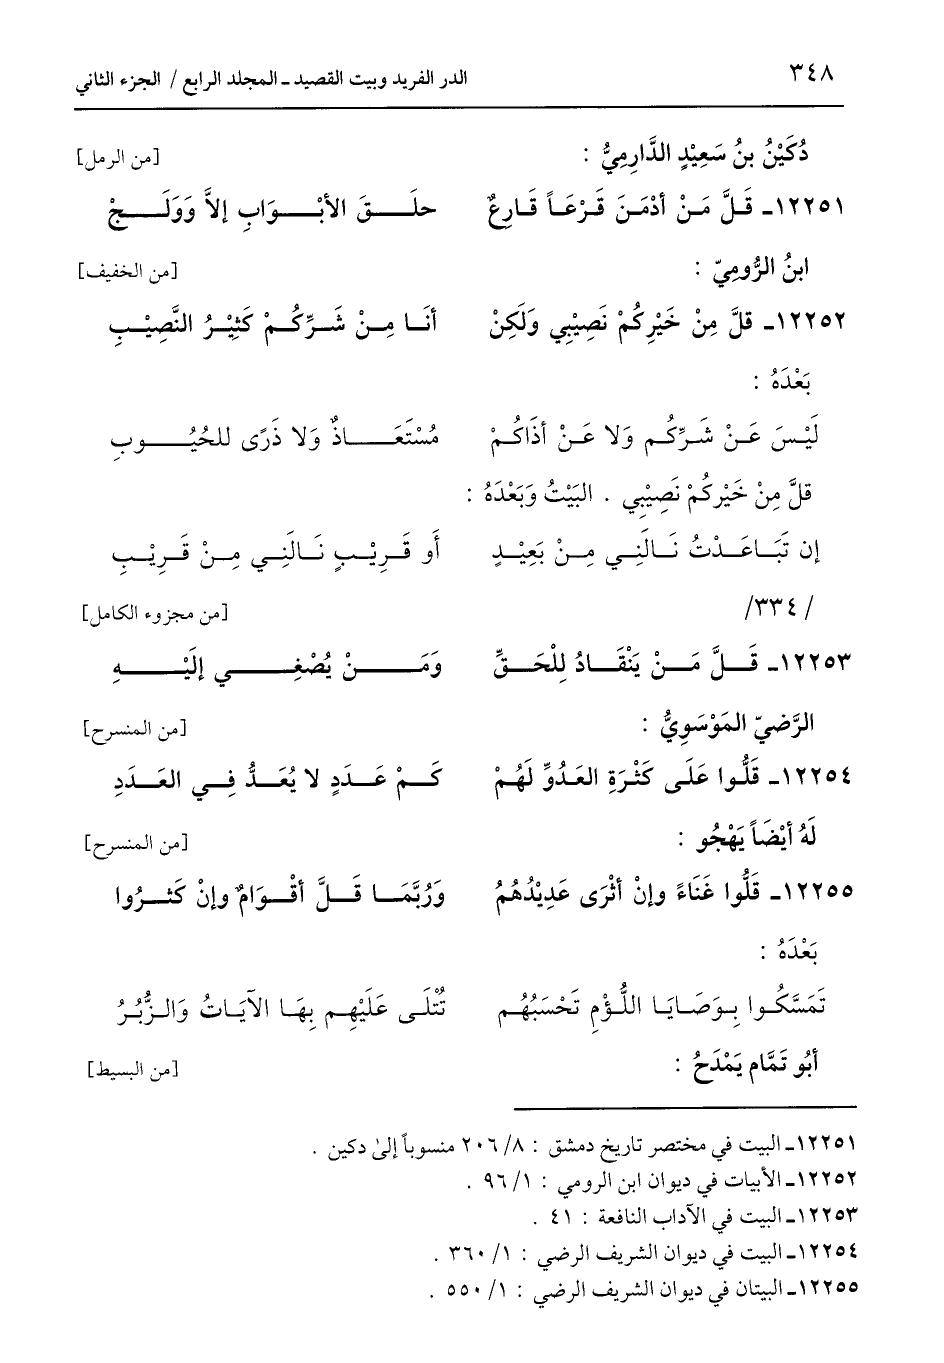 ٣٤٨ الدر الفريد وبيت القصيد ــ المجلد الرابع / الجزء الثاني
دُكَيْنُ بنُ سَعِيْدٍ الدَّارِمِيُّ : [من الرمل]
١٢٢٥١ــ قَلَّ مَنْ أدْمَنَ قَرْعَاً قَارِعٌ حلَقَ الأبْوَابِ إلاَّ وَوَلَجْ
ابنُ الرُّومِيّ : [من الخفيف]
١٢٢٥٢ــ قلَّ مِنْ خَيْرِكُمْ نَصِيْبِي وَلَكِنْ أنَا مِنْ شَرِّكُمْ كَثِيْرُ النَّصِيْبِ
بَعْدَهُ :
لَيْسَ عَنْ شَرِّكُم وَلا عَنْ أذَاكُمْ مُسْتَعَاذٌ وَلا ذَرًى للحُيُوبِ
قلَّ مِنْ خَيْرِكُمْ نَصِيْبِي . البَيْتُ وَبَعْدَهُ :
إن تَبَاعَدْتُ نَالَنِي مِنْ بَعِيْدٍ أو قَرِيْبٍ نَالَنِي مِنْ قَرِيْبِ
/ ٣٣٤/ [من مجزوء الكامل]
١٢٢٥٣ــ قَلَّ مَنْ يَنْقَادُ لِلْحَقِّ وَمَنْ يُصْغِي إلَيْهِ
الرَّضيّ المَوْسَوِيُّ : [من المنسرح]
١٢٢٥٤ــ قَلُّوا عَلَى كَثْرَةِ العَدُوِّ لَهُمْ كَمْ عَدَدٍ لا يُعَدُّ فِي العَدَدِ
لَهُ أيْضَاً يَهْجُو : [من المنسرح]
١٢٢٥٥ــ قَلُّوا غَنَاءً وإنْ أثْرَى عَدِيْدُهُمُ وَرُبَّمَا قَلَّ أقْوَامٌ وإنْ كَثرُوا
بَعْدَهُ :
تَمَسَّكُوا بِوَصَايَا اللُّؤْمِ تَحْسَبُهُم تُتْلَى عَلَيْهِم بِهَا الآيَاتُ وَالزُّبُرُ
أبُو تَمَّام يَمْدَحُ : [من البسيط]
١٢٢٥١ــ البيت في مختصر تاريخ دمشق : ٨/ ٢٠٦ منسوباً إلىٰ دكين .
١٢٢٥٢ــ الأبيات في ديوان ابن الرومي : ١/ ٩٦ .
١٢٢٥٣ــ البيت في الآداب النافعة : ٤١ .
١٢٢٥٤ــ البيت في ديوان الشريف الرضي : ١/ ٣٦٠ .
١٢٢٥٥ــ البيتان في ديوان الشريف الرضي : ١/ ٥٥٠ .